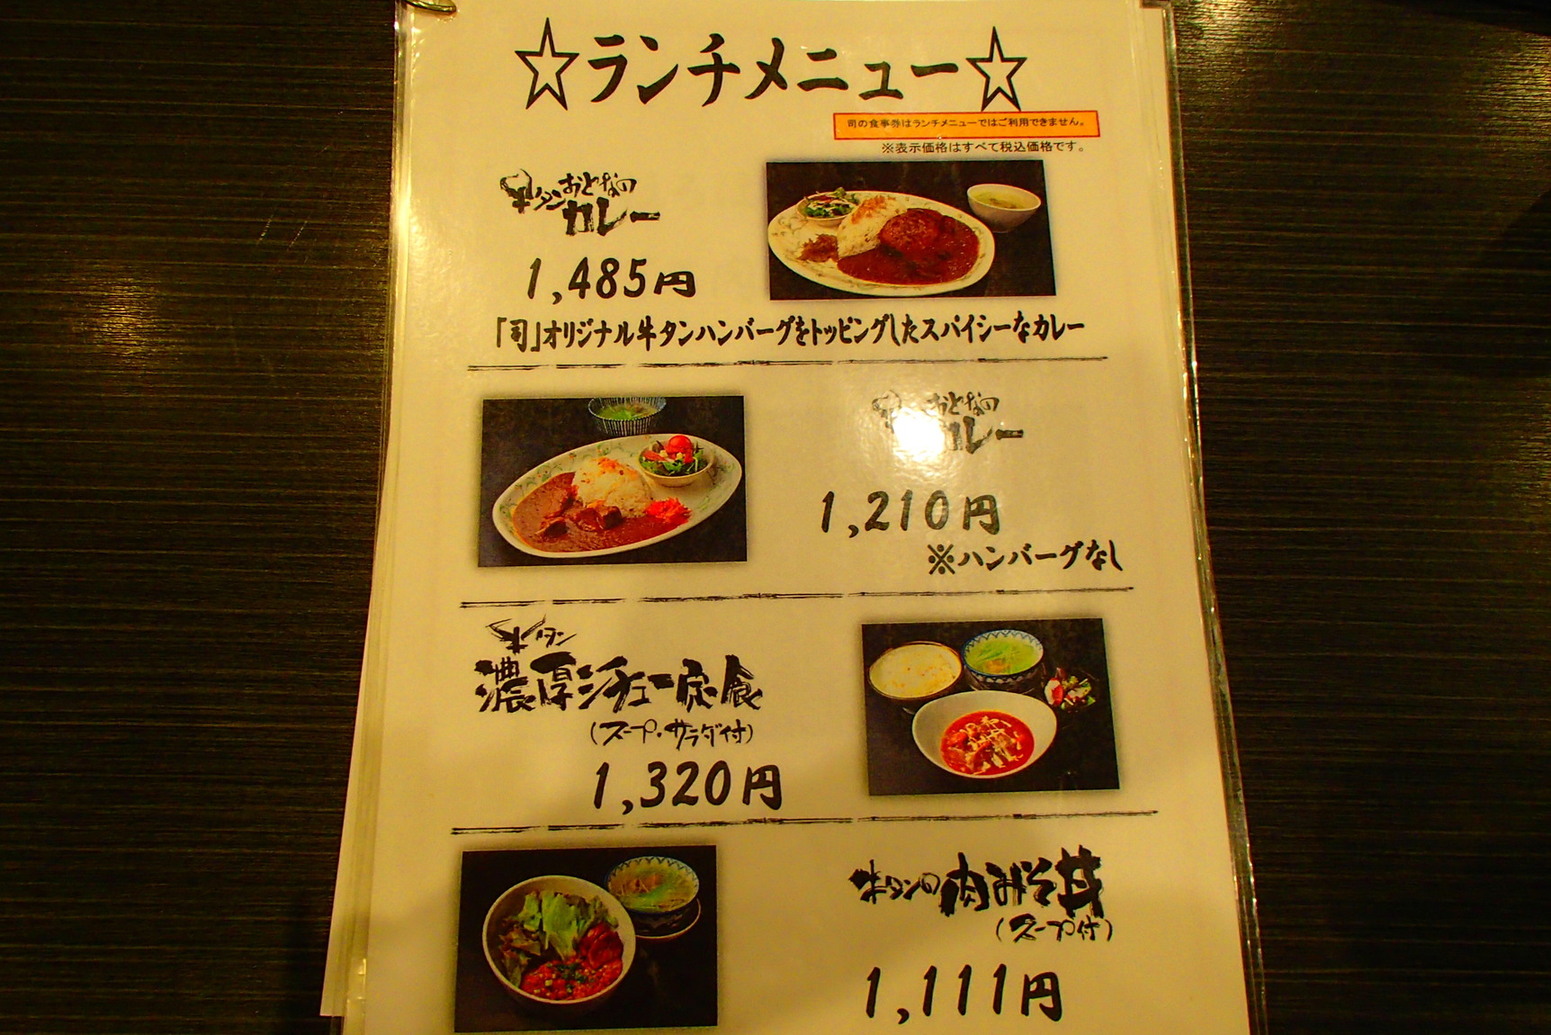 ☆ランチメニュー☆
司の食事券はランチメニューではご利用できません。
※表示価格はすべて税込価格です。
牛タンおとなの
カレー
1,485円
「司」オリジナル牛タンハンバーグをトッピングしたスパイシーなカレー
おとなの
カレー
1,210円
※ハンバーグなし
牛タン
濃厚シチュー定食
(スープ・サラダ付)
1,320円
牛タンの肉みそ丼
(スープ付)
1,111円